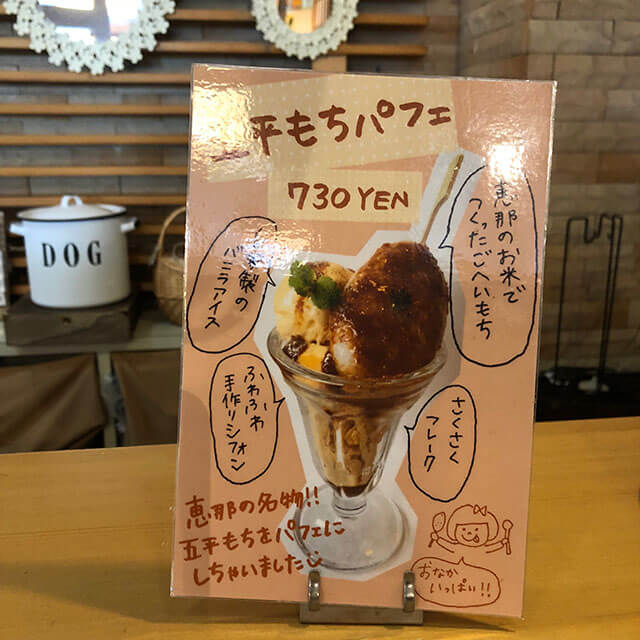 平もちパフェ
730 YEN
恵那のお米で
つくったごへいもち
製の
バニラアイス
ふわふわ
手作りシフォン
さくさく
フレーク
恵那の名物!!
五平もちをパフェに
しちゃいました
おなか
いっぱい!!
DOG